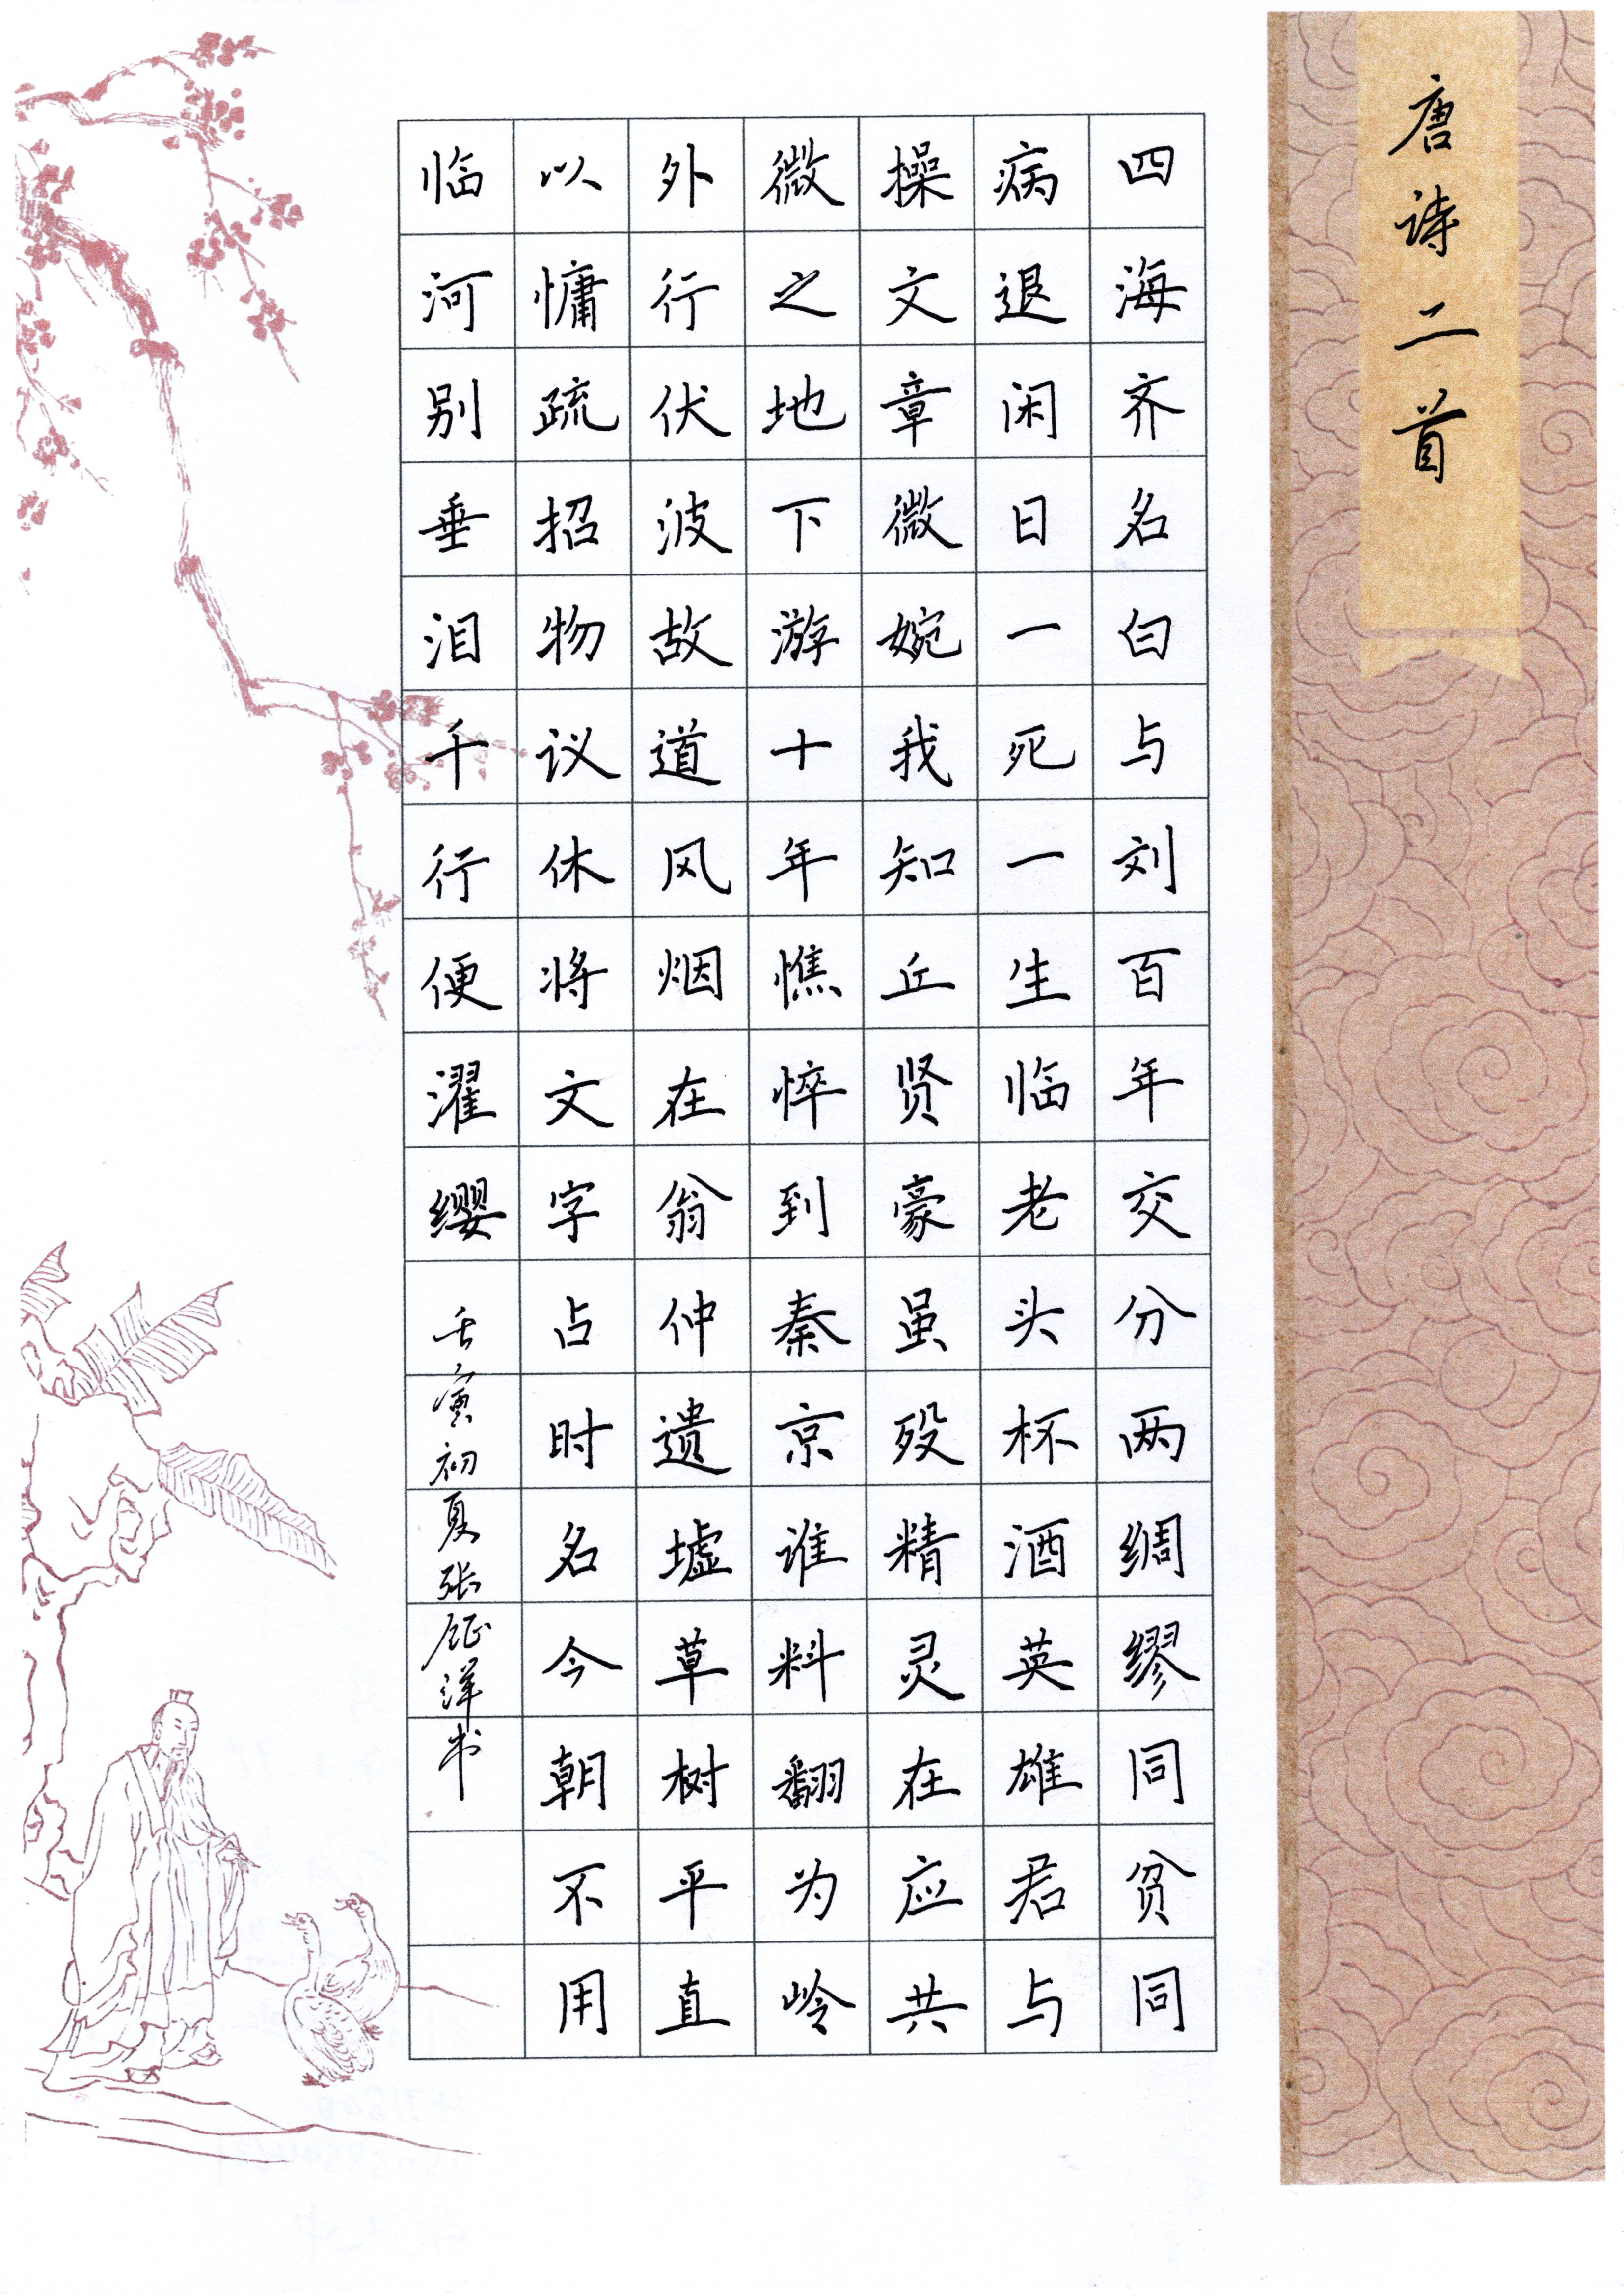 唐诗二首
四海齐名白与刘百年交分两绸缪同贫同
病退闲日一死一生临老头杯酒英雄君与
操文章微婉我知丘贤豪虽殁精灵在应共
微之地下游十年憔悴到秦京谁料翻为岭
外行伏波故道风烟在翁仲遗墟草树平直
以慵疏招物议休将文字占时名今朝不用
临河别垂泪千行便濯缨
壬寅初夏张钲洋书